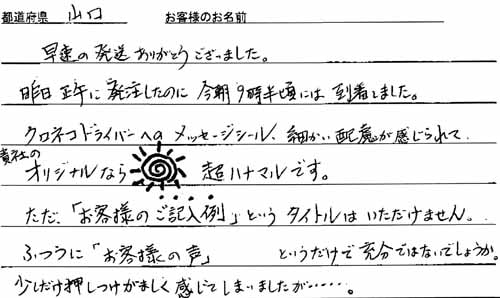 都道府県 山口 お客様のお名前
早速の発送ありがとうございました。
昨日正午に発注したのに今朝9時半頃には到着しました。
クロネコドライバーへのメッセージシール、細かい配慮が感じられて、
貴社のオリジナルなら 超ハナマルです。
ただ、「お客様のご記入例」というタイトルはいただけません。
ふつうに「お客様の声」というだけで充分ではないでしょうか。
少しだけ押しつけがましく感じてしまいましたが‥‥‥。